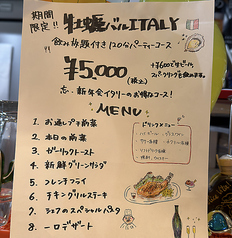 期間限定!! 牡蠣バルITALY
飲み放題付き120分パーティーコース
¥5,000(税込)
忘、新年会イタリーのお得なコース!
MENU
1. お通しプチ前菜
2. 本日の前菜
3. ガーリックトースト
4. 新鮮グリーンサラダ
5. フレンチフライ
6. チキングリルステーキ
7. シェフのスペシャルパスタ
8. 一口デザート
ドリンクメニュー